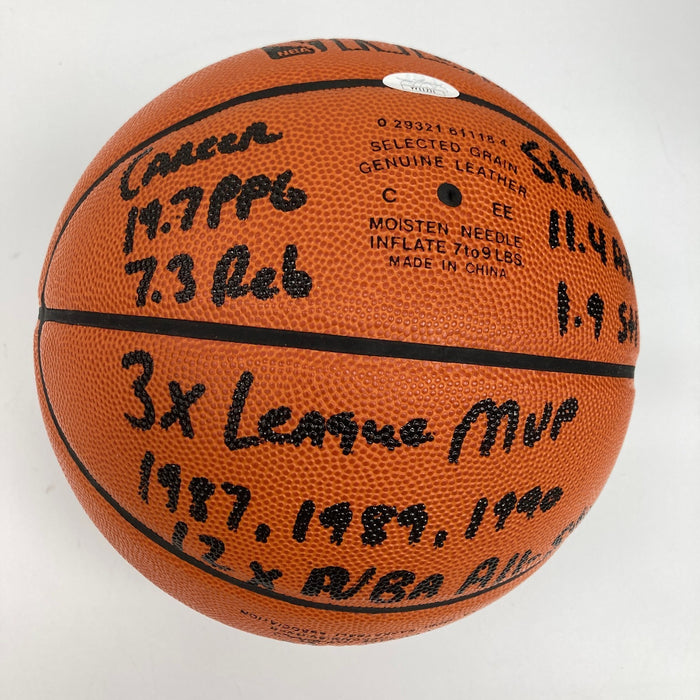 NBA
0 29321 61118 4
SELECTED GRAIN
GENUINE LEATHER
C EE
MOISTEN NEEDLE
INFLATE 7 to 9 LBS
MADE IN CHINA
Career
19.7 PPG
7.3 Reb
11.4
1.9
3x League MVP
1987, 1989, 1990
12x NBA All
ASSOCIATION